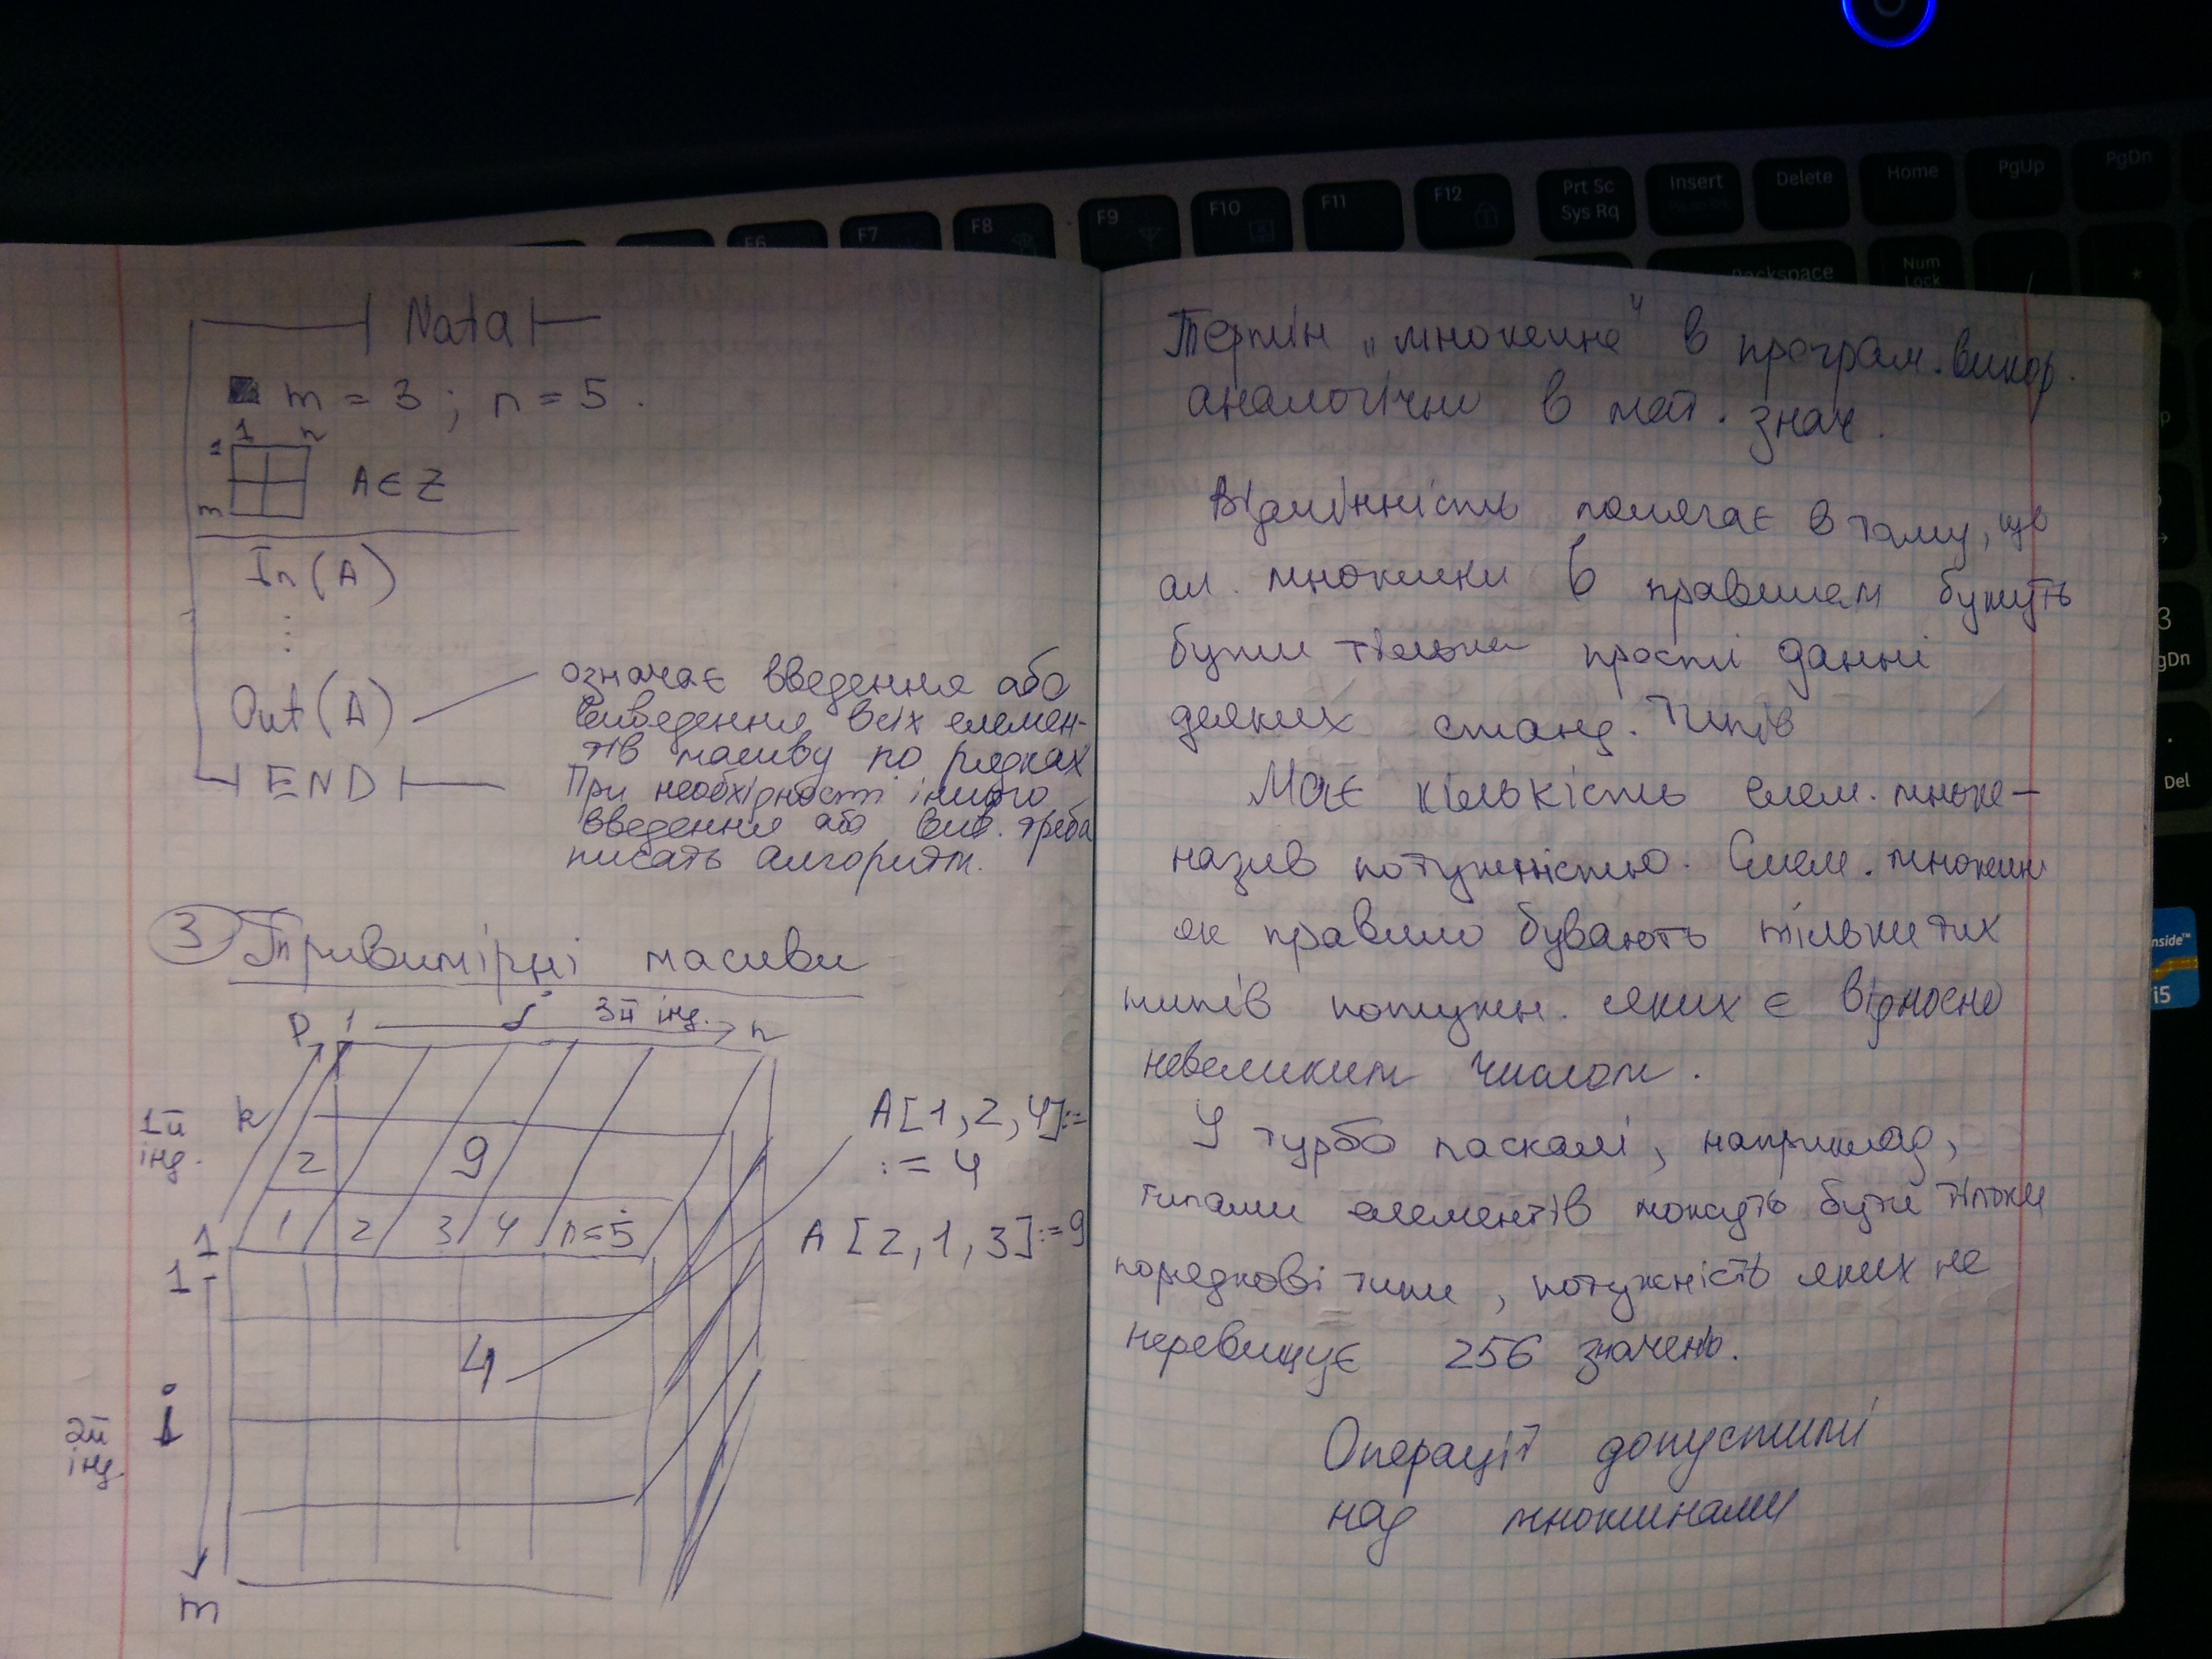 F6 F7 F8 F9 F10 F11 F12 Prt Sc Insert Delete Home PgUp PgDn
Sys Rq
Num
Lock
Del
inside™
i5
Nata
m = 3 ; n = 5 .
1 n
1
m
A ∈ Z
In (A)
⋮
Out (A)
END
означає введення або
виведення всіх елемен-
тів масиву по рядках
При необхідності іншого
введення або вив. треба
писать алгоритм.
3 Тривимірні масиви
P 1 j 3й інд. n
k
1й
інд.
2 9
1 1 2 3 4 n=5
A[1,2,4]:=
:= 4
A [2,1,3]:=9
1
4
i
2й
інд.
m
Термін „множина" в програм. викор.
аналогічно в мат. знач.
Відмінність полягає в тому, що
ел. множини в
бути тільки прості данні
деяких станд. типів
кількість елем. множ-
назив потужністю. Елем. множини
як правило бувають тільки тих
типів потужн. яких є відносно
невеликим числом.
У турбо паскалі, наприклад,
типами елементів можуть бути тільки
порядкові типи, потужність яких не
перевищує 256 значень.
Операції допустимі
над множинами